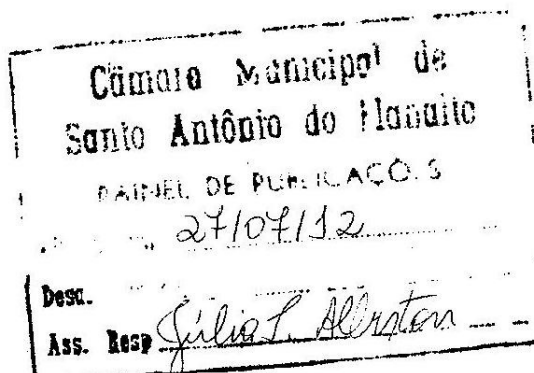 Câmara Municipal de
Santo Antônio do Planalto
PAINEL DE PUBLICAÇÕES
27/07/12
Desc.
Ass. Resp Júlia